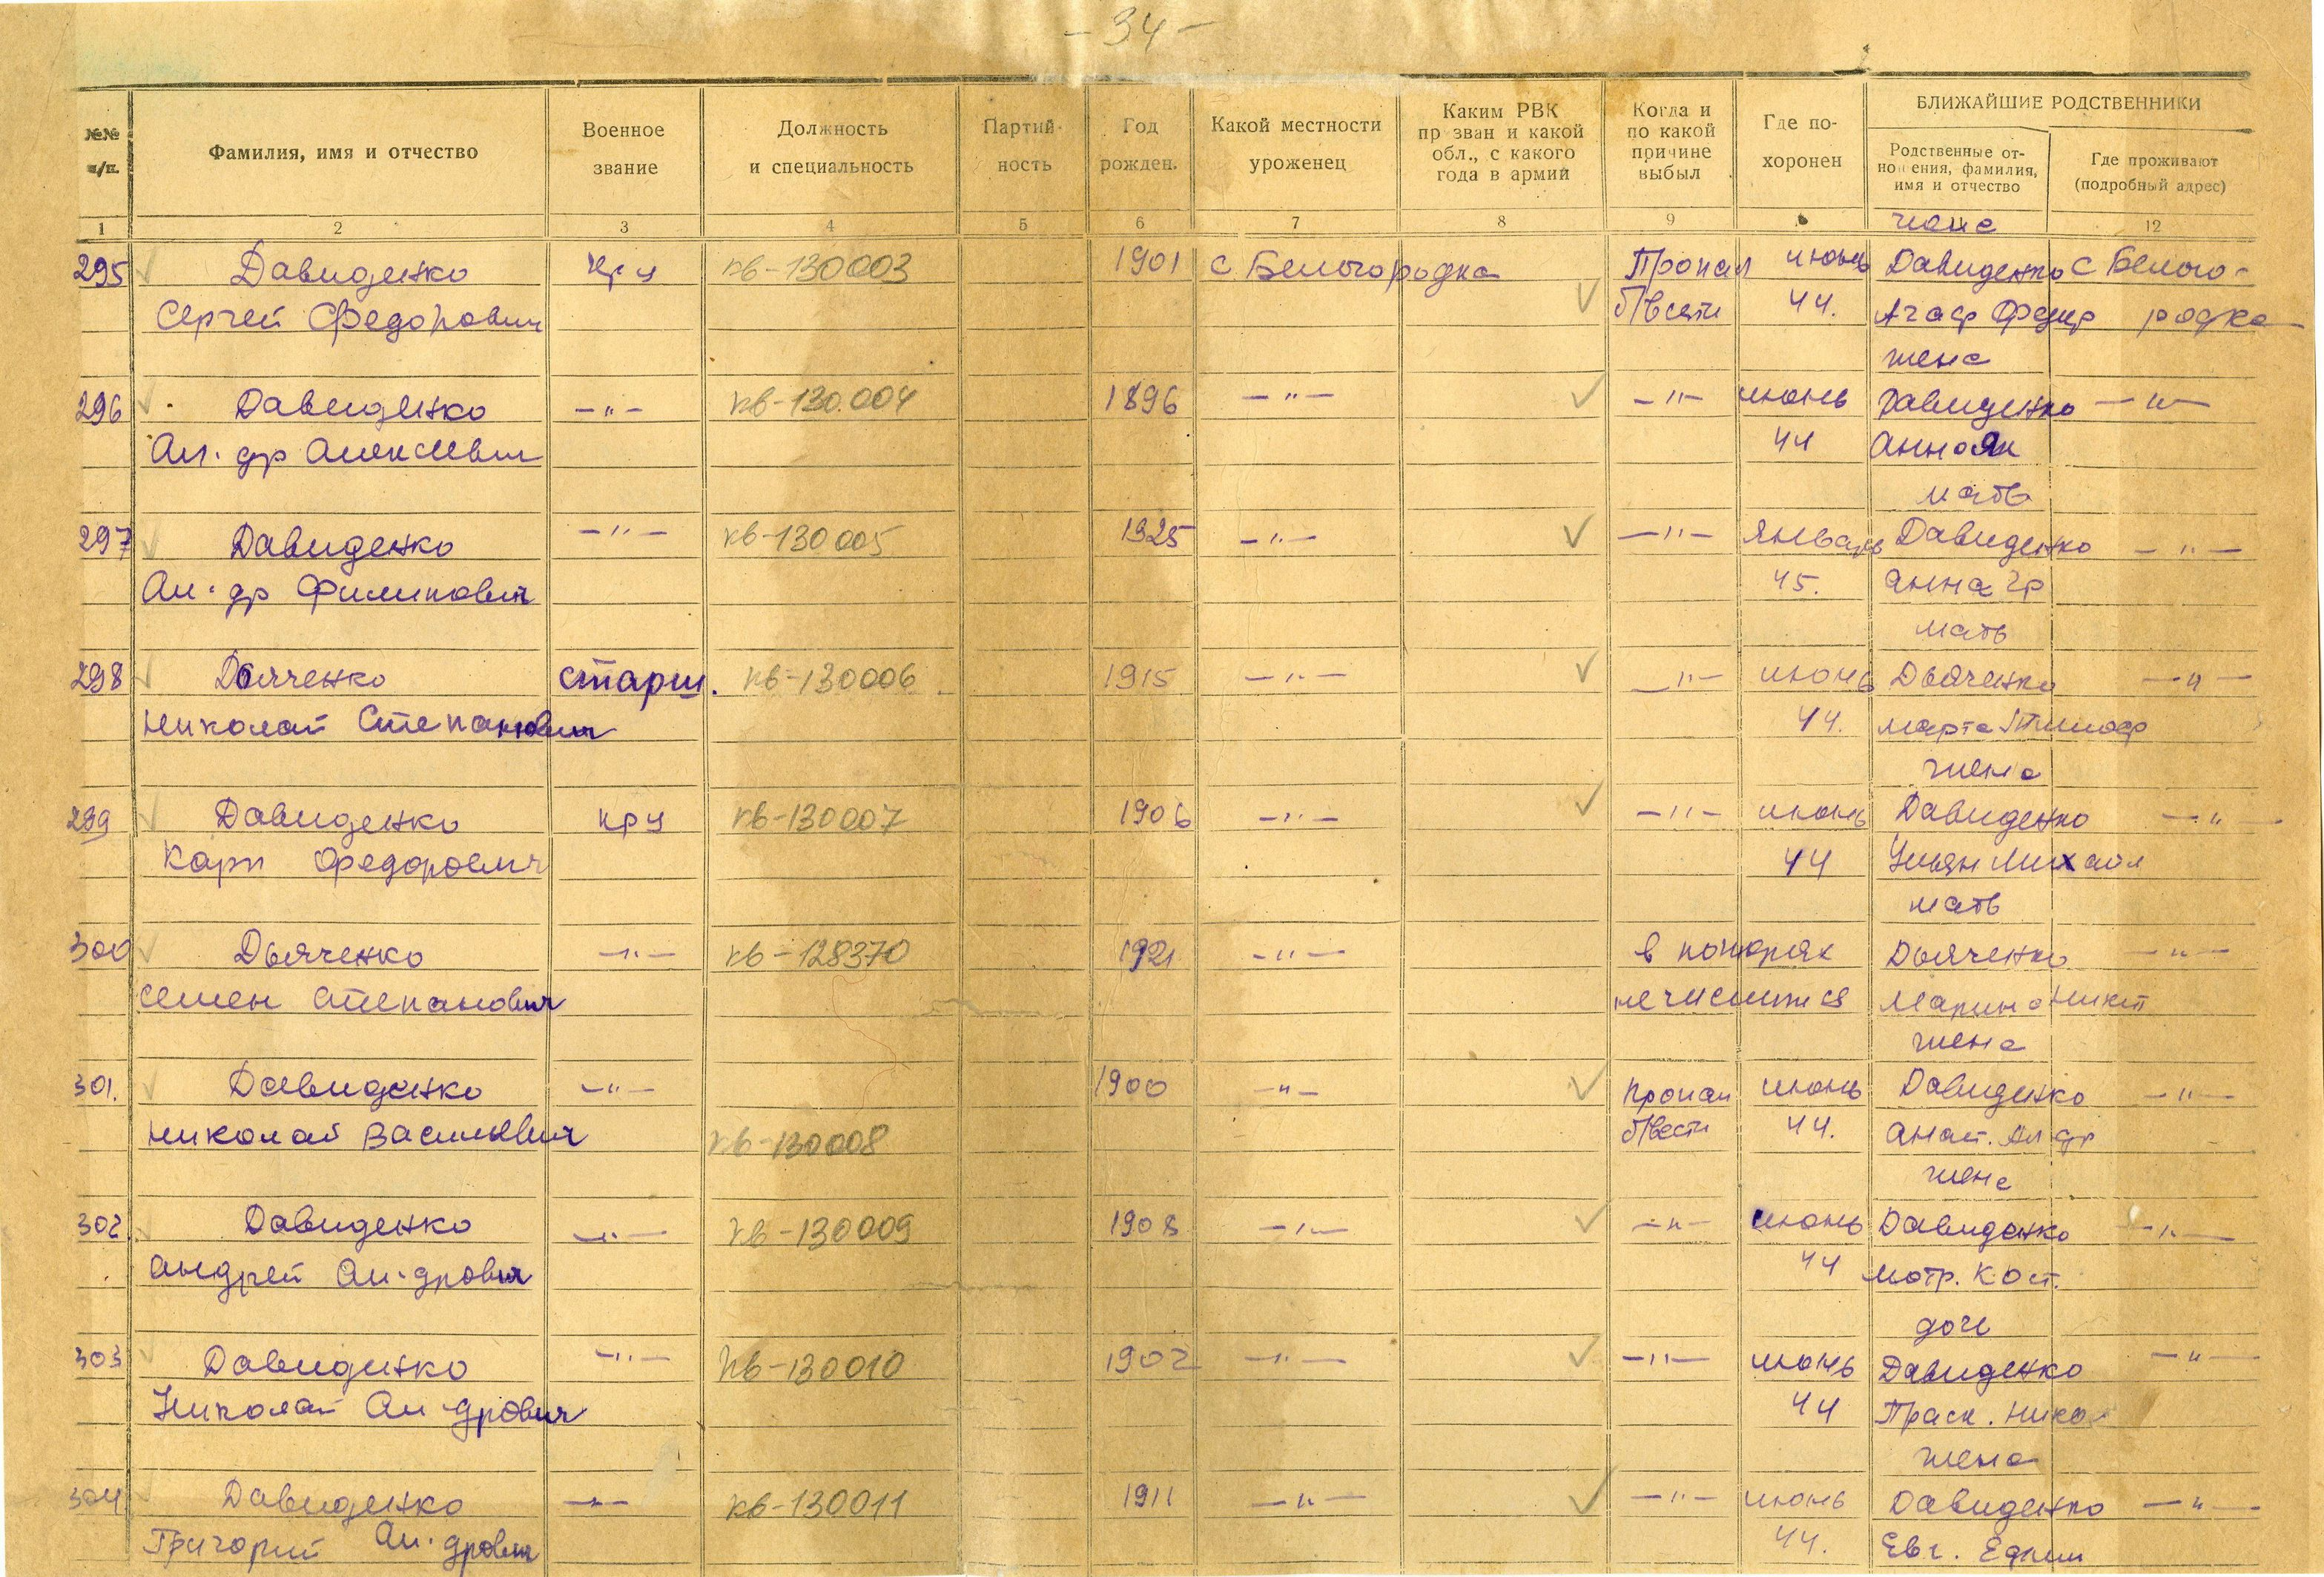 - 34 -
БЛИЖАЙШИЕ РОДСТВЕННИКИ
№№ п/п. Фамилия, имя и отчество Военное звание Должность и специальность Партий- ность Год рожден. Какой местности уроженец Каким РВК пр зван и какой обл., с какого года в армии Когда и по какой причине выбыл Где по- хоронен Родственные от- но ения, фамилия, имя и отчество Где проживают (подробный адрес)
1 2 3 4 5 6 7 8 9 12
жена
295 Давиденко кр-ц кв-130003 1901 с. Белогородка Пропал июнь Давиденко с Бело-
Сергей Федорович б/вести 44. Агаф Федор родка
жена
296 Давиденко —"— кв-130.004 1896 —"— —"— июнь Давиденко —"—
Ал-др Алексеевич 44 Анна Як
мать
297 Давиденко —"— кв-130005 1925 —"— —"— январь Давиденко —"—
Ал-др Филипович 45. Анна Гр
мать
298 Дьяченко старш. кв-130006 1915 —"— —"— июнь Дьяченко —"—
Николай Степанович 44. Марта Тимоф
жена
299 Давиденко кр-ц кв-130007 1906 —"— —"— июнь Давиденко —"—
Карп Федорович 44 Ульян Михайл
мать
300 Дьяченко —"— кв-128370 1921 —"— в Дьяченко —"—
Семен Степанович не числится Марина Никит
жена
301. Давиденко —"— 1900 —"— Пропал июнь Давиденко —"—
Николай Васильевич кв-130008 б/вести 44. Анаст. Ал др
жена
302 Давиденко —"— кв-130009 1908 —"— —"— июнь Давиденко —"—
Андрей Ал-дрович 44 Мотр. Кост.
доч
303 Давиденко —"— кв-130010 1902 —"— —"— июнь Давиденко —"—
Николай Ал-дрович 44 Праск. Нико
жена
304 Давиденко —"— кв-130011 1911 —"— —"— июнь Давиденко —"—
Григорий Ал-дрович 44. Евг.